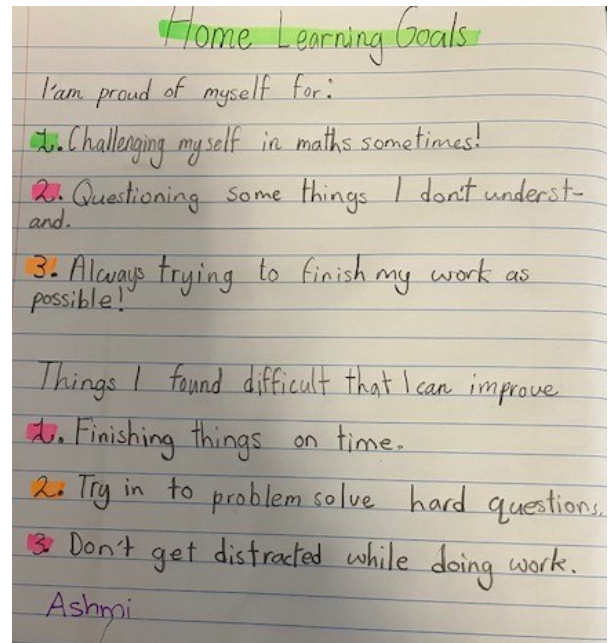 Home Learning Goals
I'am proud of myself for:
1. Challenging myself in maths sometimes!
2. Questioning some things I don't underst-
and.
3. Always trying to finish my work as
possible!
Things I found difficult that I can improve
1. Finishing things on time.
2. Try in to problem solve hard questions.
3. Don't get distracted while doing work.
Ashmi